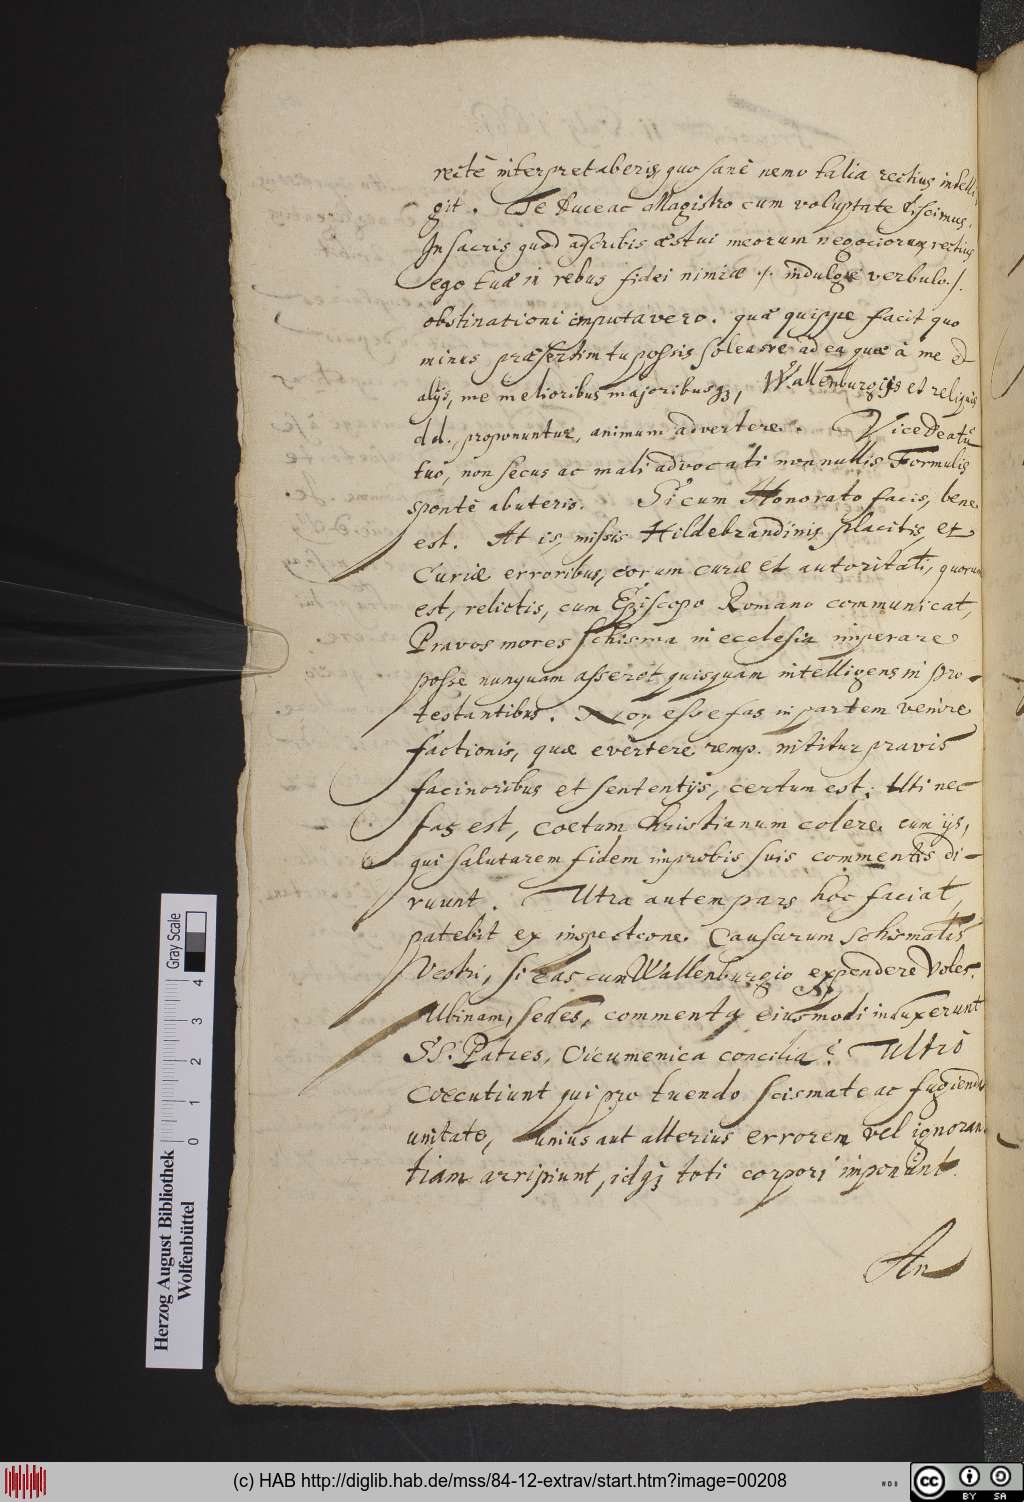 rectè interpretaberis, quo sanè nemo talia rectius intelli
git. Te Duce ac Magistro cum voluptate discimus.
In sacris quod adscribis æstui meorum negociorum, rectius
ego tuæ in rebus fidei nimiæ ./. indulge verbulo ./.
obstinationi imputavero. quæ quippe facit quo
minus præsertim tu possis soleasve ad ea quæ à me et
alijs, me melioribus majoribusq;, Wallenburgijs et reliquis
dd. proponuntur, animum advertere. Vicedeatu
tuo, non secus ac mali advocati nonnullis Formulis
spontè abuteris. Si cum Honorato facis, bene
est. At is, missis Hildebrandinis placitis, et
Curiæ erroribus, eorum curæ et autoritati, quorum
est, relictis, cum Episcopo Romano communicat,
Pravos mores schisma in ecclesia imperare
posse nunquam asseret quisquam intelligens in Pro-
testantibus. Non esse fas in partem venire
factionis, quæ evertere remp. nititur pravis
facinoribus et sententijs, certum est. Uti nec
fas est, coetum Christianum colere cum ijs,
qui salutarem fidem improbis suis commentis di-
ruunt. Utra autem pars hoc faciat,
patebit ex inspectione Causarum schismatis
Vestri, si eas cum Wallenburgio expendere Voles.
Ubinam, sedes, commenta eiusmodi induxerunt
SS. Patres, Oicumenica concilia? Ultrò
coecutiunt qui pro tuendo scismate ac fugienda
unitate, unius aut alterius errorem vel ignoran
tiam arripiunt, idq; toti corpori imponunt.
An
Herzog August Bibliothek
Wolfenbüttel
Gray Scale
0 1 2 3 4
(c) HAB http://diglib.hab.de/mss/84-12-extrav/start.htm?image=00208
cc BY SA